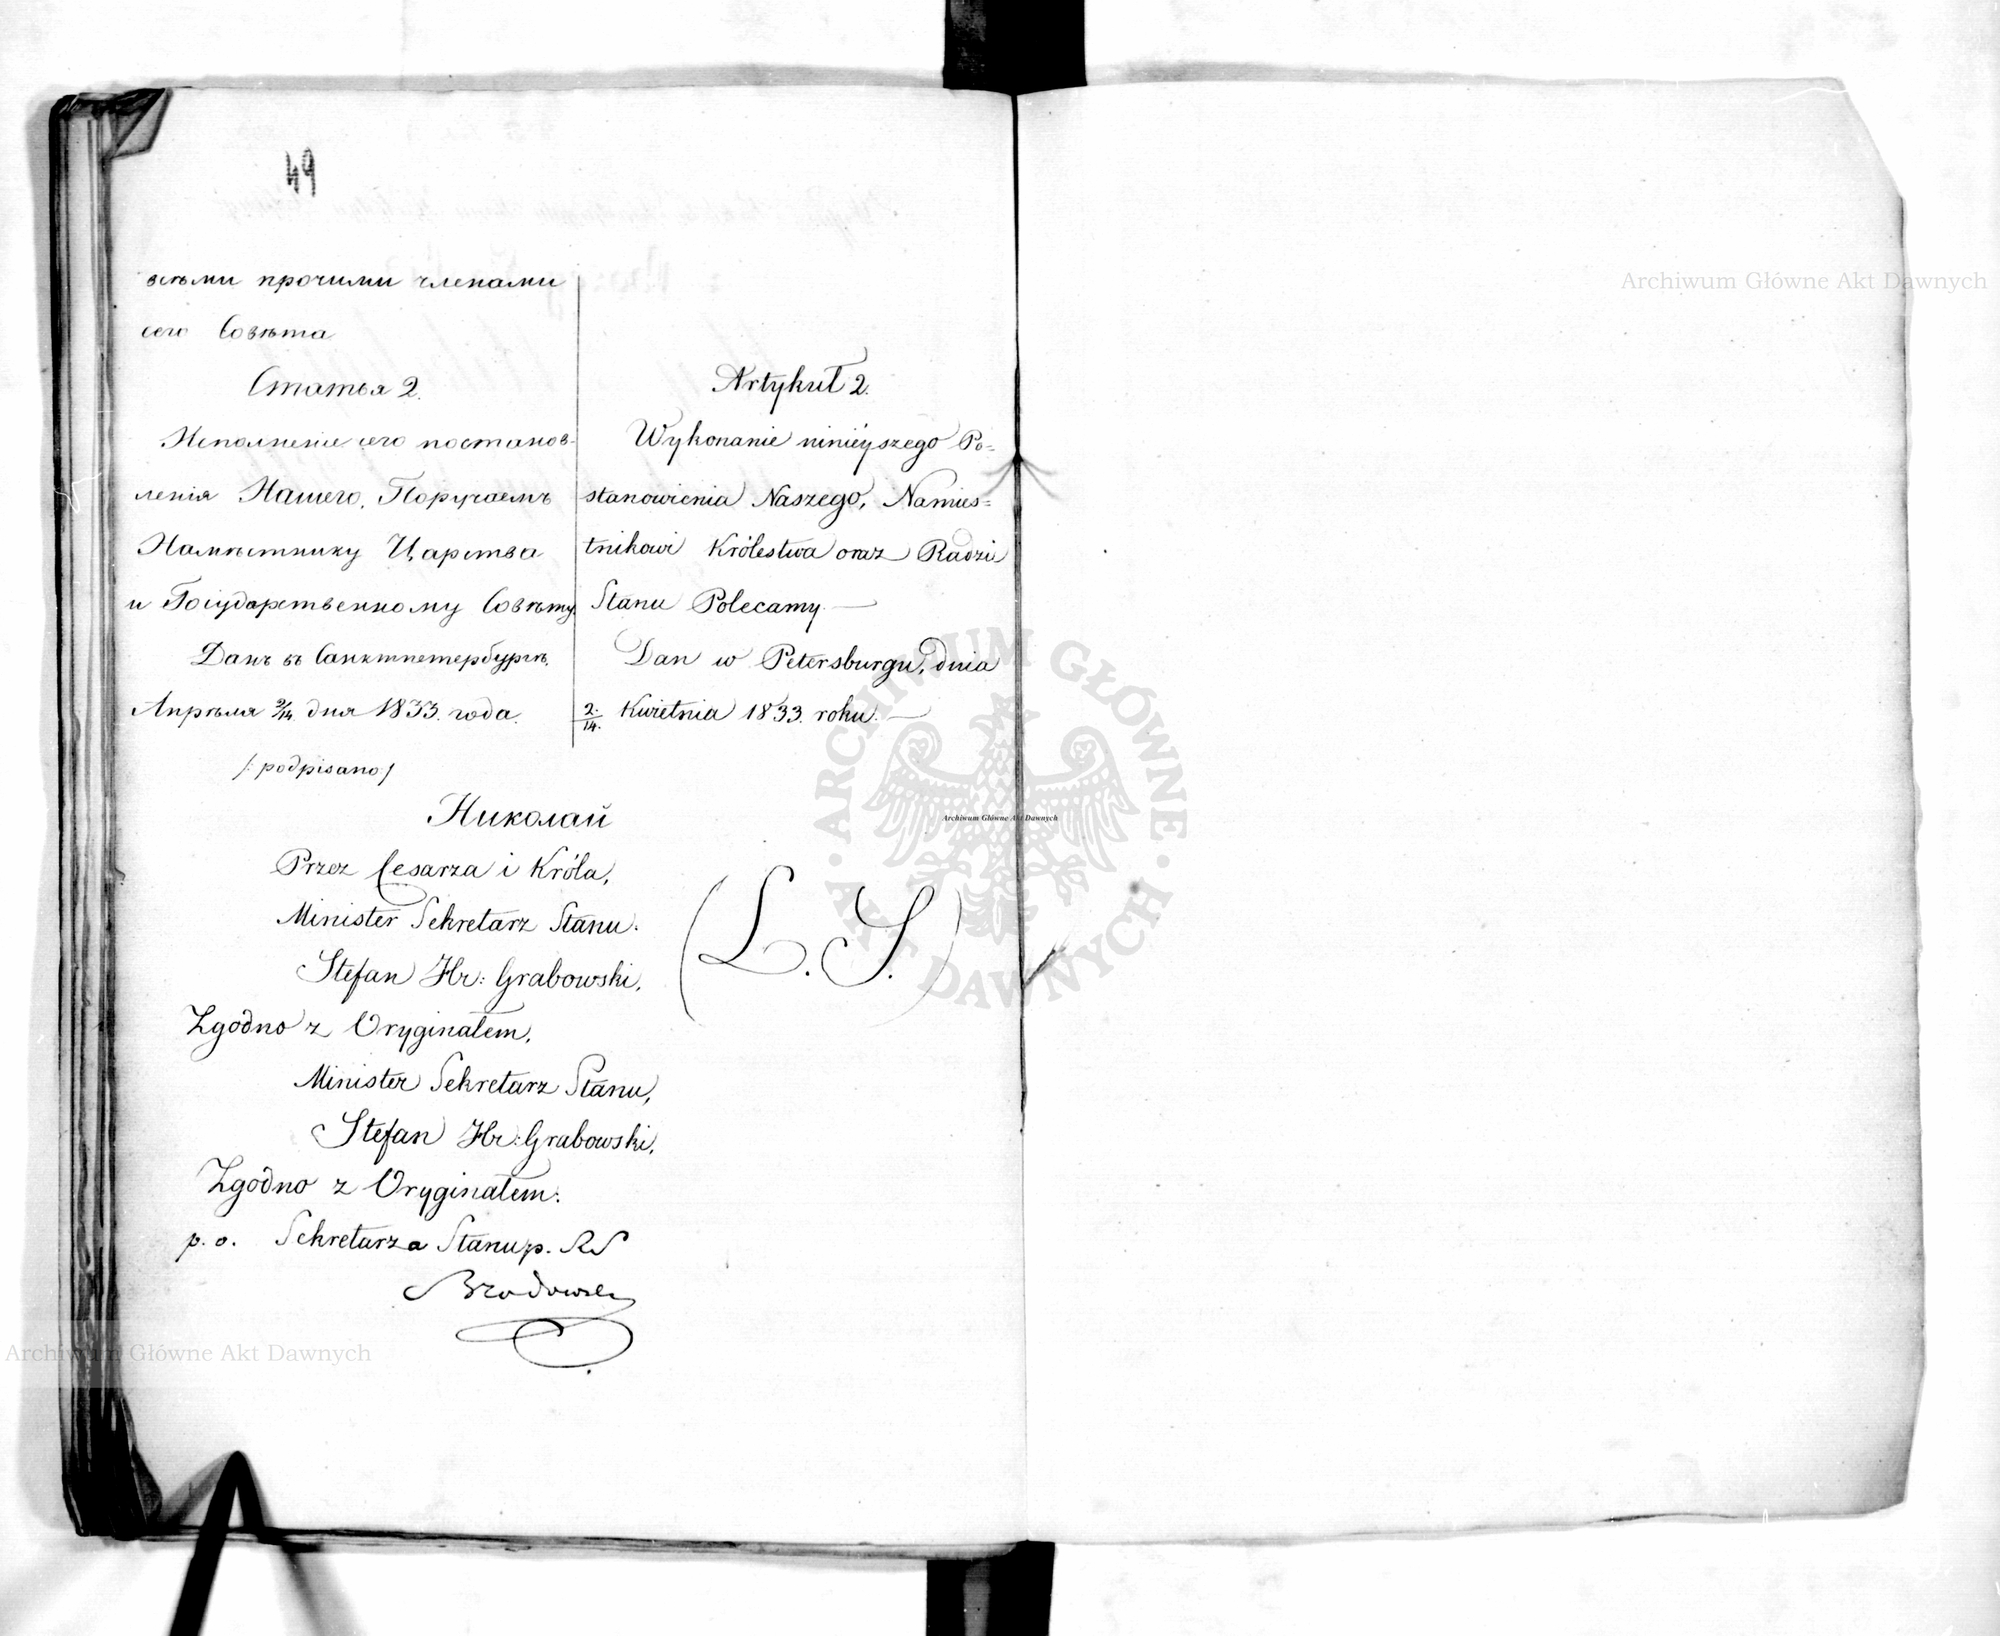 49
всѣми прочими членами
сего Совѣта
Статья 2.
Исполненіе сего постанов-
ленія Нашего, Поручаемъ
Намѣстнику Царства
и Государственному Совѣту.
Данъ въ Санктпетербургѣ,
Апрѣля 2/14. дня 1833. года.
Artykuł 2.
Wykonanie ninieyszego Po=
stanowienia Naszego, Namies=
tnikowi Królestwa oraz Radzie
Stanu Polecamy. —
Dan w Petersburgu, dnia
2./14. Kwietnia 1833. roku. —
/: podpisano :/
Николай
Przez Cesarza i Króla,
Minister Sekretarz Stanu.
Stefan Hr: Grabowski,
(L. S.)
Zgodno z Oryginałem,
Minister Sekretarz Stanu,
Stefan Hr: Grabowski,
Zgodno z Oryginałem:
p. o. Sekretarza Stanu p. RS
Brodowski
Archiwum Główne Akt Dawnych
Archiwum Główne Akt Dawnych
Archiwum Główne Akt Dawnych
ARCHIWUM GŁÓWNE AKT DAWNYCH